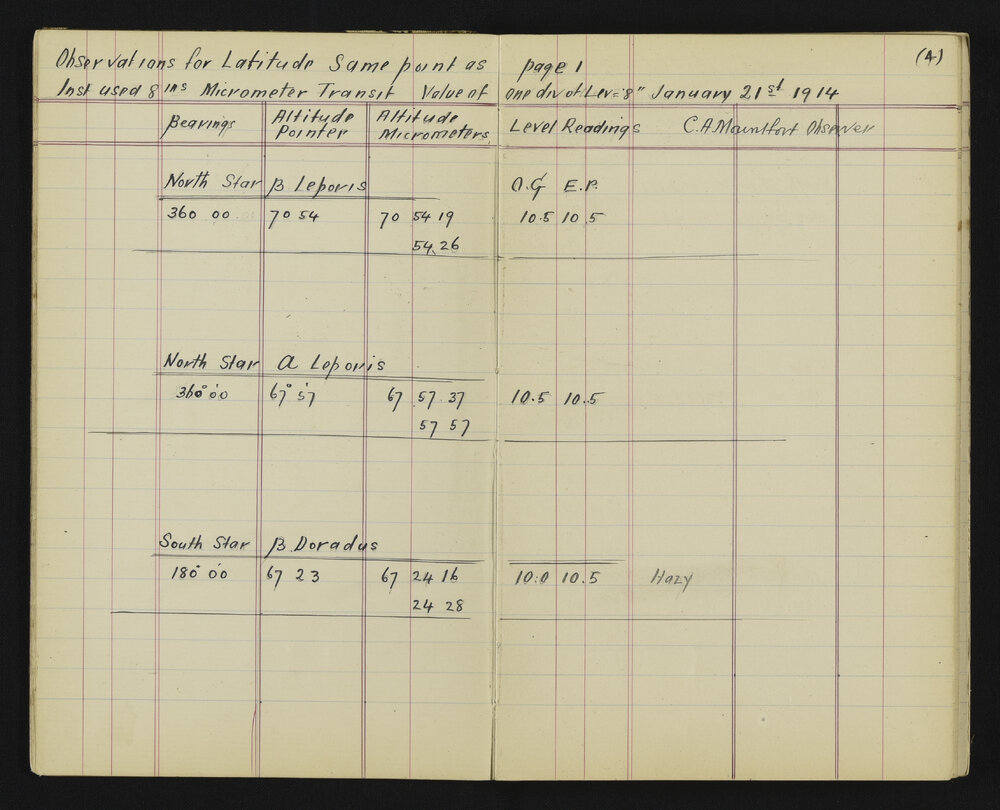 (4)
Observations for Latitude Same point as page 1
Inst used 8 ins Micrometer Transit Value of one div of Lev = 8" January 21st 1914
Bearings Altitude Pointer Altitude Micrometers Level Readings C.A Mountfort Observer
North Star β Leporis O.G E.P.
360 00 70 54 70 54 19 10.5 10.5
54 26
North Star α Leporis
360° 00' 67° 57' 67 57 37 10.5 10.5
57 57
South Star β Doradus
180° 00' 67 23 67 24 16 10.0 10.5 Hazy
24 28